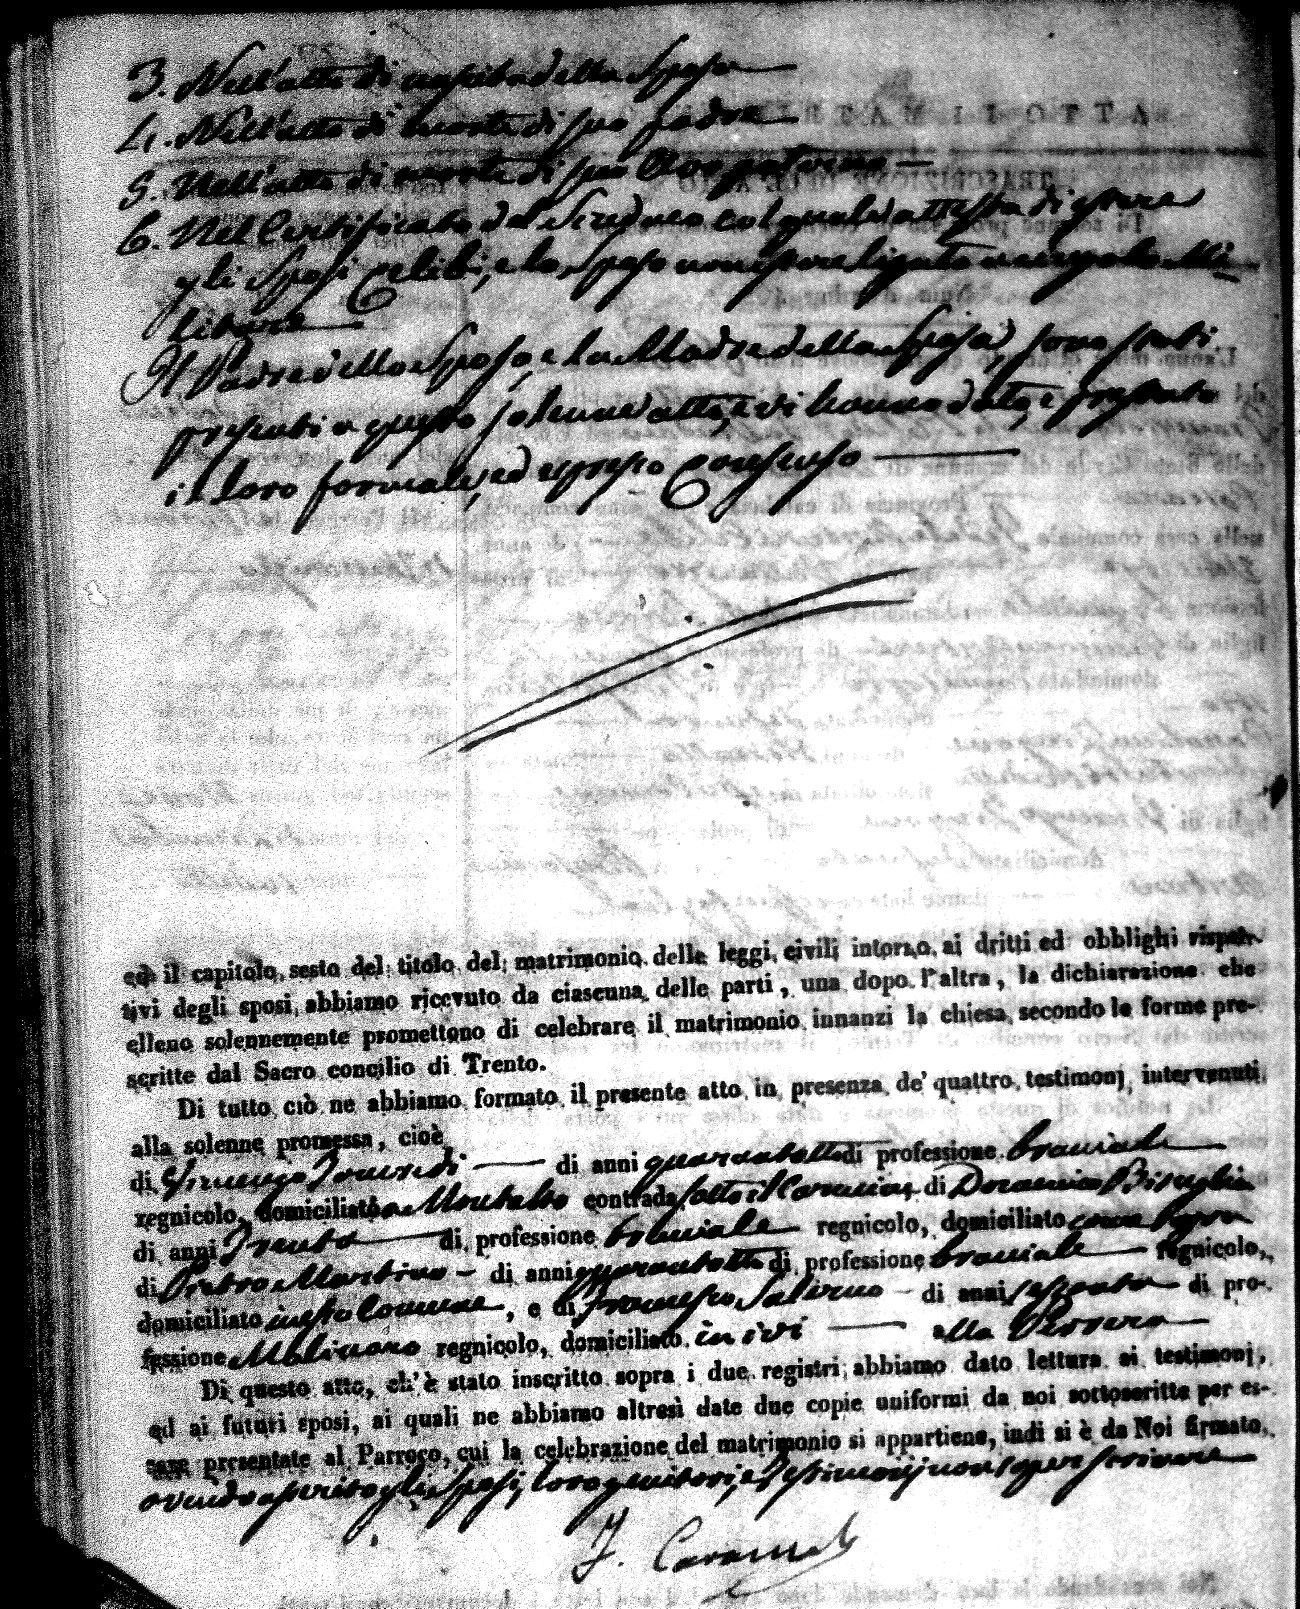 3. Nell'atto di nascita della Sposa
4. Nell'atto di morte di suo padre
5. Nell'atto di morte di suo Avo paterno
6. Nel Certificato del Sindaco col quale attesta di essere
gli Sposi Celibi, e lo Sposo non essere ligato a vincolo Mi
litare
Il Padre dello Sposo, e la Madre della Sposa, sono stati
presenti a questo solenne atto, e vi hanno dato, e prestato
il loro formale, ed espresso Consenso
ed il capitolo sesto del titolo del matrimonio delle leggi civili intorno ai dritti ed obblighi rispet-
tivi degli sposi, abbiamo ricevuto da ciascuna delle parti, una dopo l'altra, la dichiarazione che
elleno solennemente promettono di celebrare il matrimonio innanzi la chiesa secondo le forme pre-
scritte dal Sacro concilio di Trento.
Di tutto ciò ne abbiamo formato il presente atto in presenza de' quattro testimonj intervenuti
alla solenne promessa, cioè
di di anni quarantotto di professione bracciale
regnicolo, domiciliato a Montalto contrada sotto il di Domenico Bisuglia
di anni Trenta di professione bracciale regnicolo, domiciliato come sopra
di Pietro Martino di anni quarantotto di professione bracciale regnicolo,
domiciliato in Comune, e di Francesco Salerno di anni sessanta di pro-
fessione Molinaro regnicolo, domiciliato in ivi alla
Di questo atto, ch'è stato inscritto sopra i due registri, abbiamo dato lettura ai testimonj,
ed ai futuri sposi, ai quali ne abbiamo altresì date due copie uniformi da noi sottoscritte per es-
sere presentate al Parroco, cui la celebrazione del matrimonio si appartiene, indi si è da Noi firmato,
avendo asserito gli Sposi, loro genitori, e Testimonj non saper scrivere